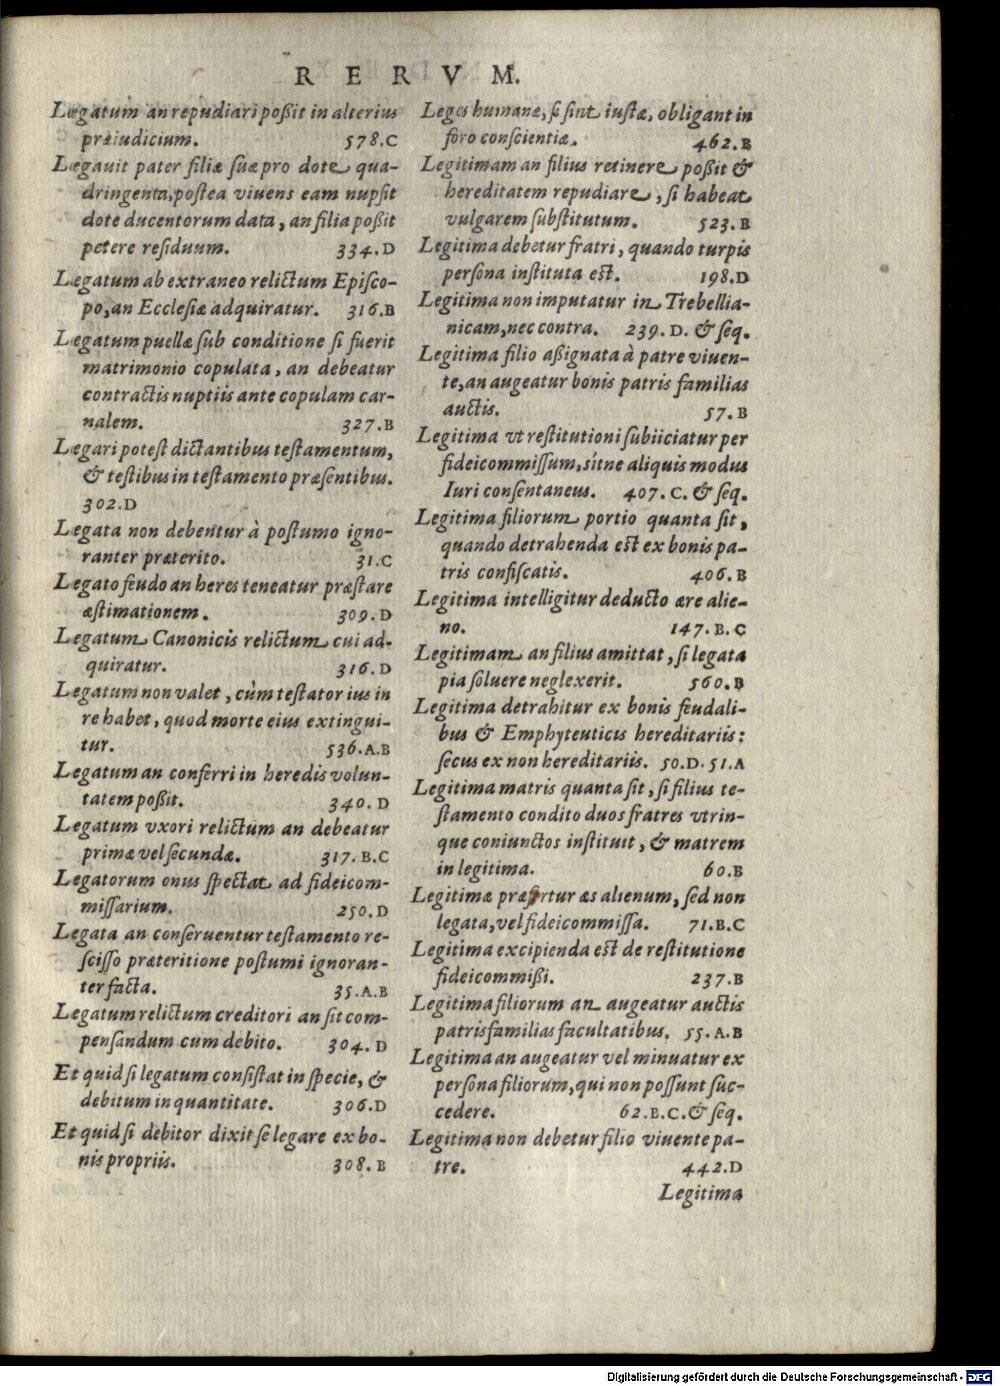 RERVM.
Legatum an repudiari poßit in alterius
præiudicium. 578.C
Legauit pater filiæ suæ pro dote qua-
dringenta, postea viuens eam nupsit
dote ducentorum data, an filia poßit
petere residuum. 334.D
Legatum ab extraneo relictum Episco-
po, an Ecclesiæ adquiratur. 316.B
Legatum puellæ sub conditione si fuerit
matrimonio copulata, an debeatur
contractis nuptiis ante copulam car-
nalem. 327.B
Legari potest dictantibus testamentum,
& testibus in testamento præsentibus.
302.D
Legata non debentur à postumo igno-
ranter præterito. 31.C
Legato feudo an heres teneatur præstare
æstimationem. 309.D
Legatum Canonicis relictum cui ad-
quiratur. 316.D
Legatum non valet, cùm testator ius in
re habet, quod morte eius extingui-
tur. 536.A.B
Legatum an conferri in heredis volun-
tatem poßit. 340.D
Legatum vxori relictum an debeatur
primæ vel secundæ. 317.B.C
Legatorum onus spectat ad fideicom-
missarium. 250.D
Legata an conseruentur testamento re-
scisso præteritione postumi ignoran-
ter facta. 35.A.B
Legatum relictum creditori an sit com-
pensandum cum debito. 304.D
Et quid si legatum consistat in specie, &
debitum in quantitate. 306.D
Et quid si debitor dixit se legare ex bo-
nis propriis. 308.B
Leges humanæ, si sint iustæ, obligant in
foro conscientiæ. 462.B
Legitimam an filius retinere poßit &
hereditatem repudiare, si habeat
vulgarem substitutum. 523.B
Legitima debetur fratri, quando turpis
persona instituta est. 198.D
Legitima non imputatur in Trebellia-
nicam, nec contra. 239.D. & seq.
Legitima filio aßignata à patre viuen-
te, an augeatur bonis patris familias
auctis. 57.B
Legitima vt restitutioni subiiciatur per
fideicommissum, sítne aliquis modus
Iuri consentaneus. 407.C. & seq.
Legitima filiorum portio quanta sit,
quando detrahenda est ex bonis pa-
tris confiscatis. 406.B
Legitima intelligitur deducto ære alie-
no. 147.B.C
Legitimam an filius amittat, si legata
pia soluere neglexerit. 560.B
Legitima detrahitur ex bonis feudali-
bus & Emphyteuticis hereditariis:
secus ex non hereditariis. 50.D.51.A
Legitima matris quanta sit, si filius te-
stamento condito duos fratres vtrin-
que coniunctos instituit, & matrem
in legitima. 60.B
Legitimæ præfertur æs alienum, sed non
legata, vel fideicommissa. 71.B.C
Legitima excipienda est de restitutione
fideicommißi. 237.B
Legitima filiorum an augeatur auctis
patrisfamilias facultatibus. 55.A.B
Legitima an augeatur vel minuatur ex
persona filiorum, qui non possunt suc-
cedere. 62.B.C. & seq.
Legitima non debetur filio viuente pa-
tre. 442.D
Legitima
Digitalisierung gefördert durch die Deutsche Forschungsgemeinschaft - DFG